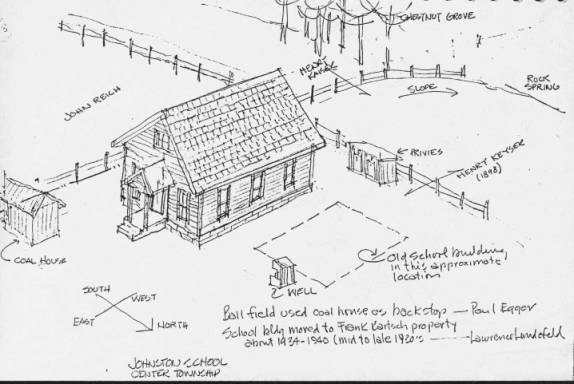 CHESTNUT GROVE
HENRY
KARAK
ROCK
SPRING
SLOPE
JOHN REICH
PRIVIES
HENRY KEYSER
(1898)
COAL HOUSE
Old School building
in this approximate
location
WELL
SOUTH
WEST
EAST
NORTH
Ball field used coal house as backstop — Paul Egger
School bldg moved to Frank Kartsch property
about 1934-1940 (mid to late 1930's — Lawrence Landefeld
JOHNSTON SCHOOL
CENTER TOWNSHIP